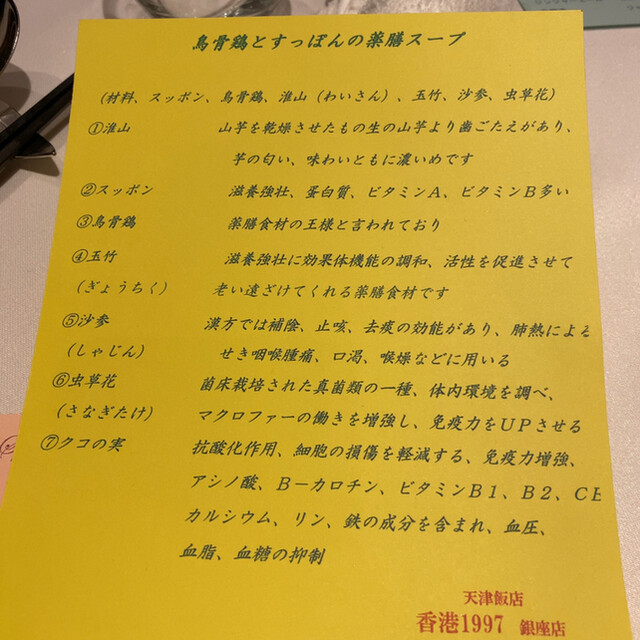 烏骨鶏とすっぽんの薬膳スープ
(材料、スッポン、烏骨鶏、淮山(わいさん)、玉竹、沙参、虫草花)
①淮山 山芋を乾燥させたもの生の山芋より歯ごたえがあり、
芋の匂い、味わいともに濃いめです
②スッポン 滋養強壮、蛋白質、ビタミンA、ビタミンB多い
③烏骨鶏 薬膳食材の王様と言われており
④玉竹 滋養強壮に効果体機能の調和、活性を促進させて
(ぎょうちく) 老い遠ざけてくれる薬膳食材です
⑤沙参 漢方では補陰、止咳、去痰の効能があり、肺熱による
(しゃじん) せき咽喉腫痛、口渇、喉燥などに用いる
⑥虫草花 菌床栽培された真菌類の一種、体内環境を調べ、
(さなぎたけ) マクロファーの働きを増強し、免疫力をUPさせる
⑦クコの実 抗酸化作用、細胞の損傷を軽減する、免疫力増強、
アシノ酸、B-カロチン、ビタミンB1、B2、CE
カルシウム、リン、鉄の成分を含まれ、血圧、
血脂、血糖の抑制
天津飯店
香港1997 銀座店